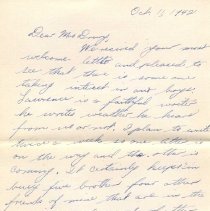 Oct 16 1942
Dear Mrs Denny,
We received your most
welcome letter and pleased to
see that there is some one
taking interest in our boys.
Lawrence is a faithful writer
he writes weather he hears
from us or not. I plan to write
twice a week so one letter is
on the way and the other is
coming. It certainly keeps me
busy five brothers four other
friends of mine that are in the